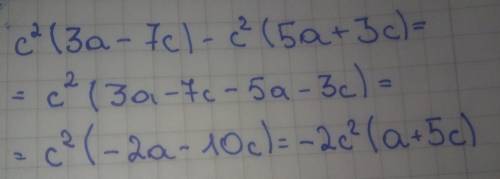 c²(3a-7c)-c²(5a+3c)=
= c²(3a-7c-5a-3c)=
= c²(-2a-10c)=-2c²(a+5c)